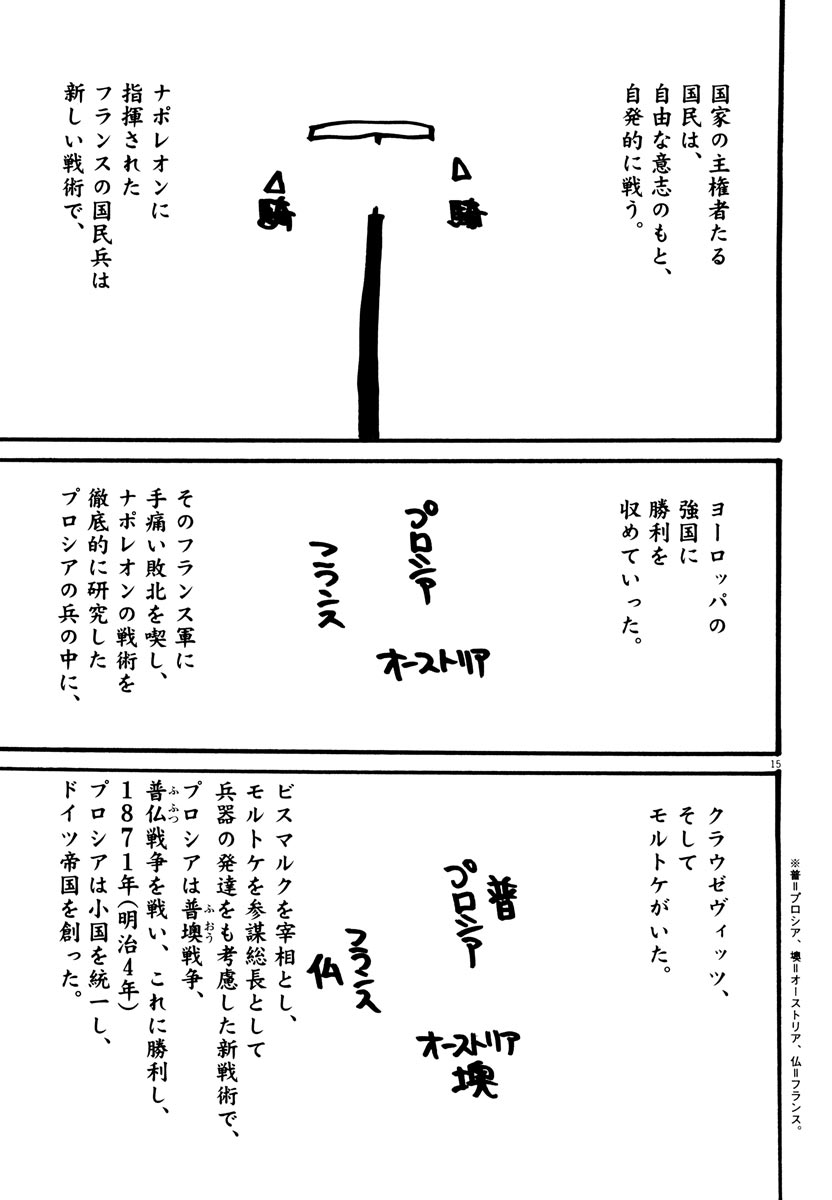 国家の主権者たる
国民は、
自由な意志のもと、
自発的に戦う。
騎
騎
ナポレオンに
指揮された
フランスの国民兵は
新しい戦術で、
ヨーロッパの
強国に
勝利を
収めていった。
プロシア
フランス
オーストリア
そのフランス軍に
手痛い敗北を喫し、
ナポレオンの戦術を
徹底的に研究した
プロシアの兵の中に、
15
※普=プロシア、墺=オーストリア、仏=フランス。
クラウゼヴィッツ、
そして
モルトケがいた。
普
プロシア
フランス
仏
オーストリア
墺
ビスマルクを宰相とし、
モルトケを参謀総長として
兵器の発達をも考慮した新戦術で、
プロシアは普墺戦争、
ふおう
普仏戦争を戦い、これに勝利し、
ふふつ
1871年(明治4年)
プロシアは小国を統一し、
ドイツ帝国を創った。